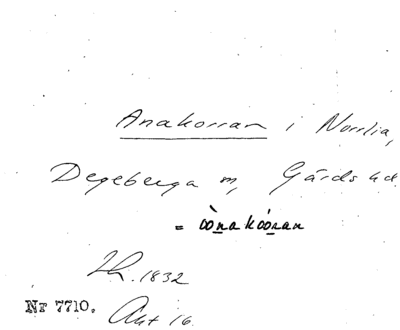 Anakorran i Norrlia,
Degeberga m, Gärds hd.
= òònakóóran
Lh. 1832
Nr 7710. Akt 16.